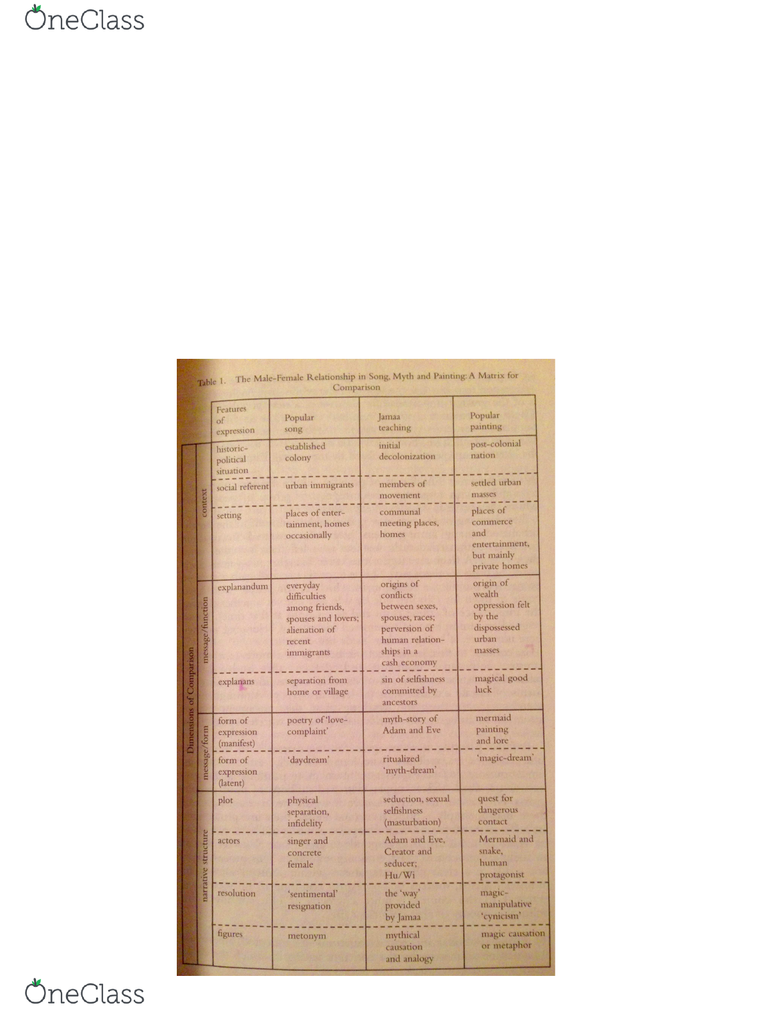 OneClass
Table 1. The Male-Female Relationship in Song, Myth and Painting: A Matrix for
Comparison
Features
of
expression
Popular
song
Jamaa
teaching
Popular
painting
Dimensions of Comparison
context
historic-
political
situation
established
colony
initial
decolonization
post-colonial
nation
social referent
urban immigrants
members of
movement
settled urban
masses
setting
places of enter-
tainment, homes
occasionally
communal
meeting places,
homes
places of
commerce
and
entertainment,
but mainly
private homes
message/function
explanandum
everyday
difficulties
among friends,
spouses and lovers;
alienation of
recent
immigrants
origins of
conflicts
between sexes,
spouses, races;
perversion of
human relation-
ships in a
cash economy
origin of
wealth
oppression felt
by the
dispossessed
urban
masses
explanans
separation from
home or village
sin of selfishness
committed by
ancestors
magical good
luck
message/form
form of
expression
(manifest)
poetry of 'love-
complaint'
myth-story of
Adam and Eve
mermaid
painting
and lore
form of
expression
(latent)
'daydream'
ritualized
'myth-dream'
'magic-dream'
narrative structure
plot
physical
separation,
infidelity
seduction, sexual
selfishness
(masturbation)
quest for
dangerous
contact
actors
singer and
concrete
female
Adam and Eve,
Creator and
seducer;
Hu/Wi
Mermaid and
snake,
human
protagonist
resolution
'sentimental'
resignation
the 'way'
provided
by Jamaa
magic-
manipulative
'cynicism'
figures
metonym
mythical
causation
and analogy
magic causation
or metaphor
OneClass